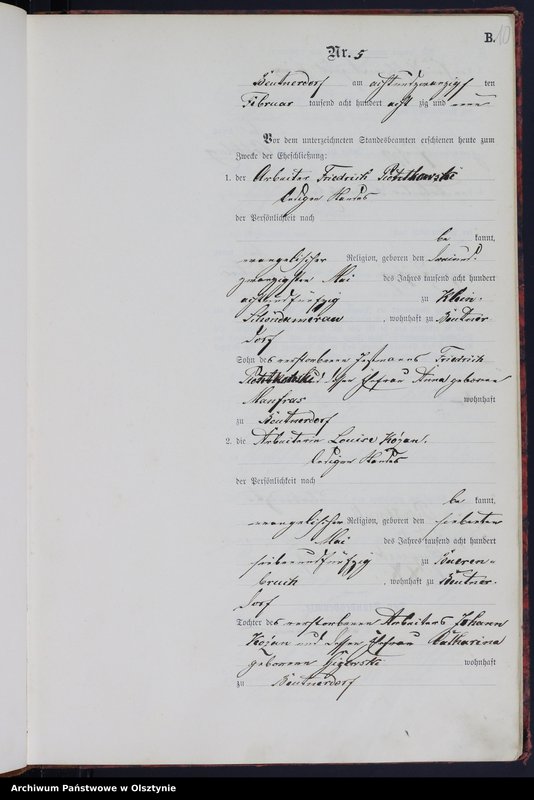 B.
10
Nr. 5
Beutnerdorf am achtundzwanzigsten
Februar tausend acht hundert achtzig und neun
Vor dem unterzeichneten Standesbeamten erschienen heute zum
Zwecke der Eheschließung:
1. der Arbeiter Friedrich
ledigen Standes
der Persönlichkeit nach
be kannt,
evangelischer Religion, geboren den dreiund-
zwanzigsten Mai des Jahres tausend acht hundert
achtundfünfzig zu Klein-
Schöndamerau, wohnhaft zu Beutner-
dorf
Sohn des verstorbenen Friedrich
dessen Ehefrau Anna geborene
wohnhaft
zu Beutnerdorf
2. die Arbeiterin Louise Kojan,
ledigen Standes
der Persönlichkeit nach
be kannt,
evangelischer Religion, geboren den siebenten
Mai des Jahres tausend acht hundert
siebenundfünfzig zu Bueren-
bruch, wohnhaft zu Beutner-
dorf
Tochter des verstorbenen Arbeiters Johann
Kojan und dessen Ehefrau Katharina
geborenen wohnhaft
zu Beutnerdorf
Archiwum Państwowe w Olsztynie